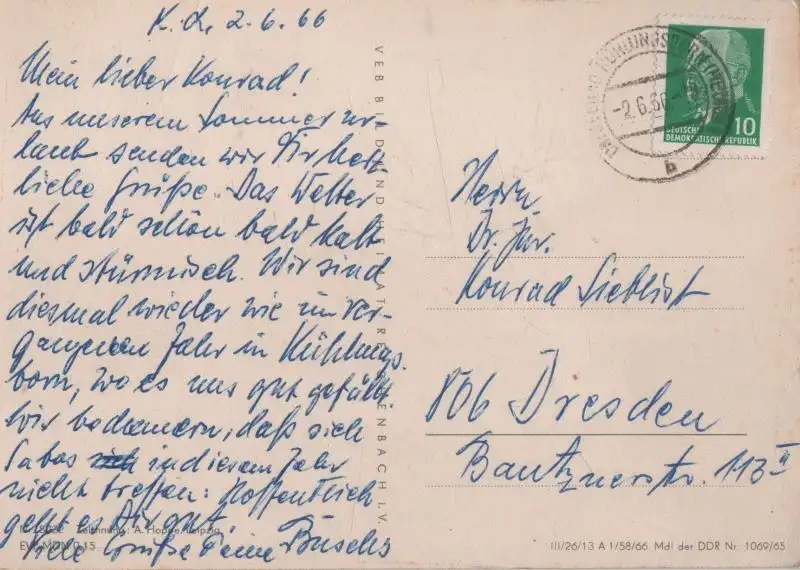 K. d. 2.6.66
Mein lieber Konrad!
Aus unserem Sommerur-
laub senden wir Dir herz-
liche Grüße. Das Wetter
ist bald schön bald kalt
und stürmisch. Wir sind
diesmal wieder wie im ver-
gangenen Jahr in Kühlungs-
born, wo es uns gut gefällt.
Wir bedauern, daß sich
in diesem Jahr
nicht treffen. Hoffentlich
geht es Dir gut.
Viele Grüße Deine Buschs
VEB BILD UND HEIMAT REICHENBACH I. V.
Zeichnung: A. Hoppe, Leipzig
EVP MDN 0,15
KÜHLUNGSBORN
-2.6.66
b
10
DEUTSCHE
DEMOKRATISCHE REPUBLIK
Herrn
Dr. jur.
Konrad Lieblist
806 Dresden
Bautznerstr. 113 II
III/26/13 A 1/58/66 MdI der DDR Nr. 1069/65